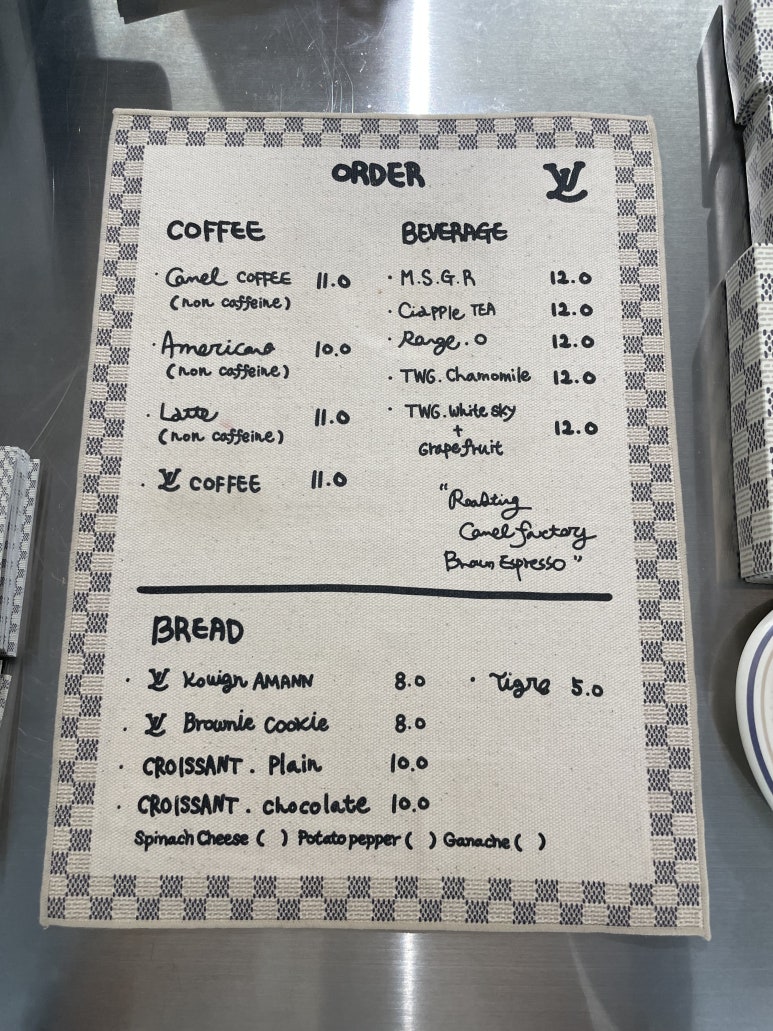 ORDER LV
COFFEE
· Canel COFFEE 11.0
(non caffeine)
· Americano 10.0
(non caffeine)
· Latte 11.0
(non caffeine)
· LV COFFEE 11.0
BEVERAGE
· M.S.G.R 12.0
· Ciapple TEA 12.0
· Range.O 12.0
· TWG.Chamomile 12.0
· TWG.White sky
+
Grapefruit 12.0
"Roasting
Canel factory
Braun Espresso"
BREAD
· LV Kouign AMANN 8.0
· LV Brownie Cookie 8.0
· CROISSANT. Plain 10.0
· CROISSANT. chocolate 10.0
· Tigre 5.0
Spinach Cheese ( ) Potato pepper ( ) Ganache ( )